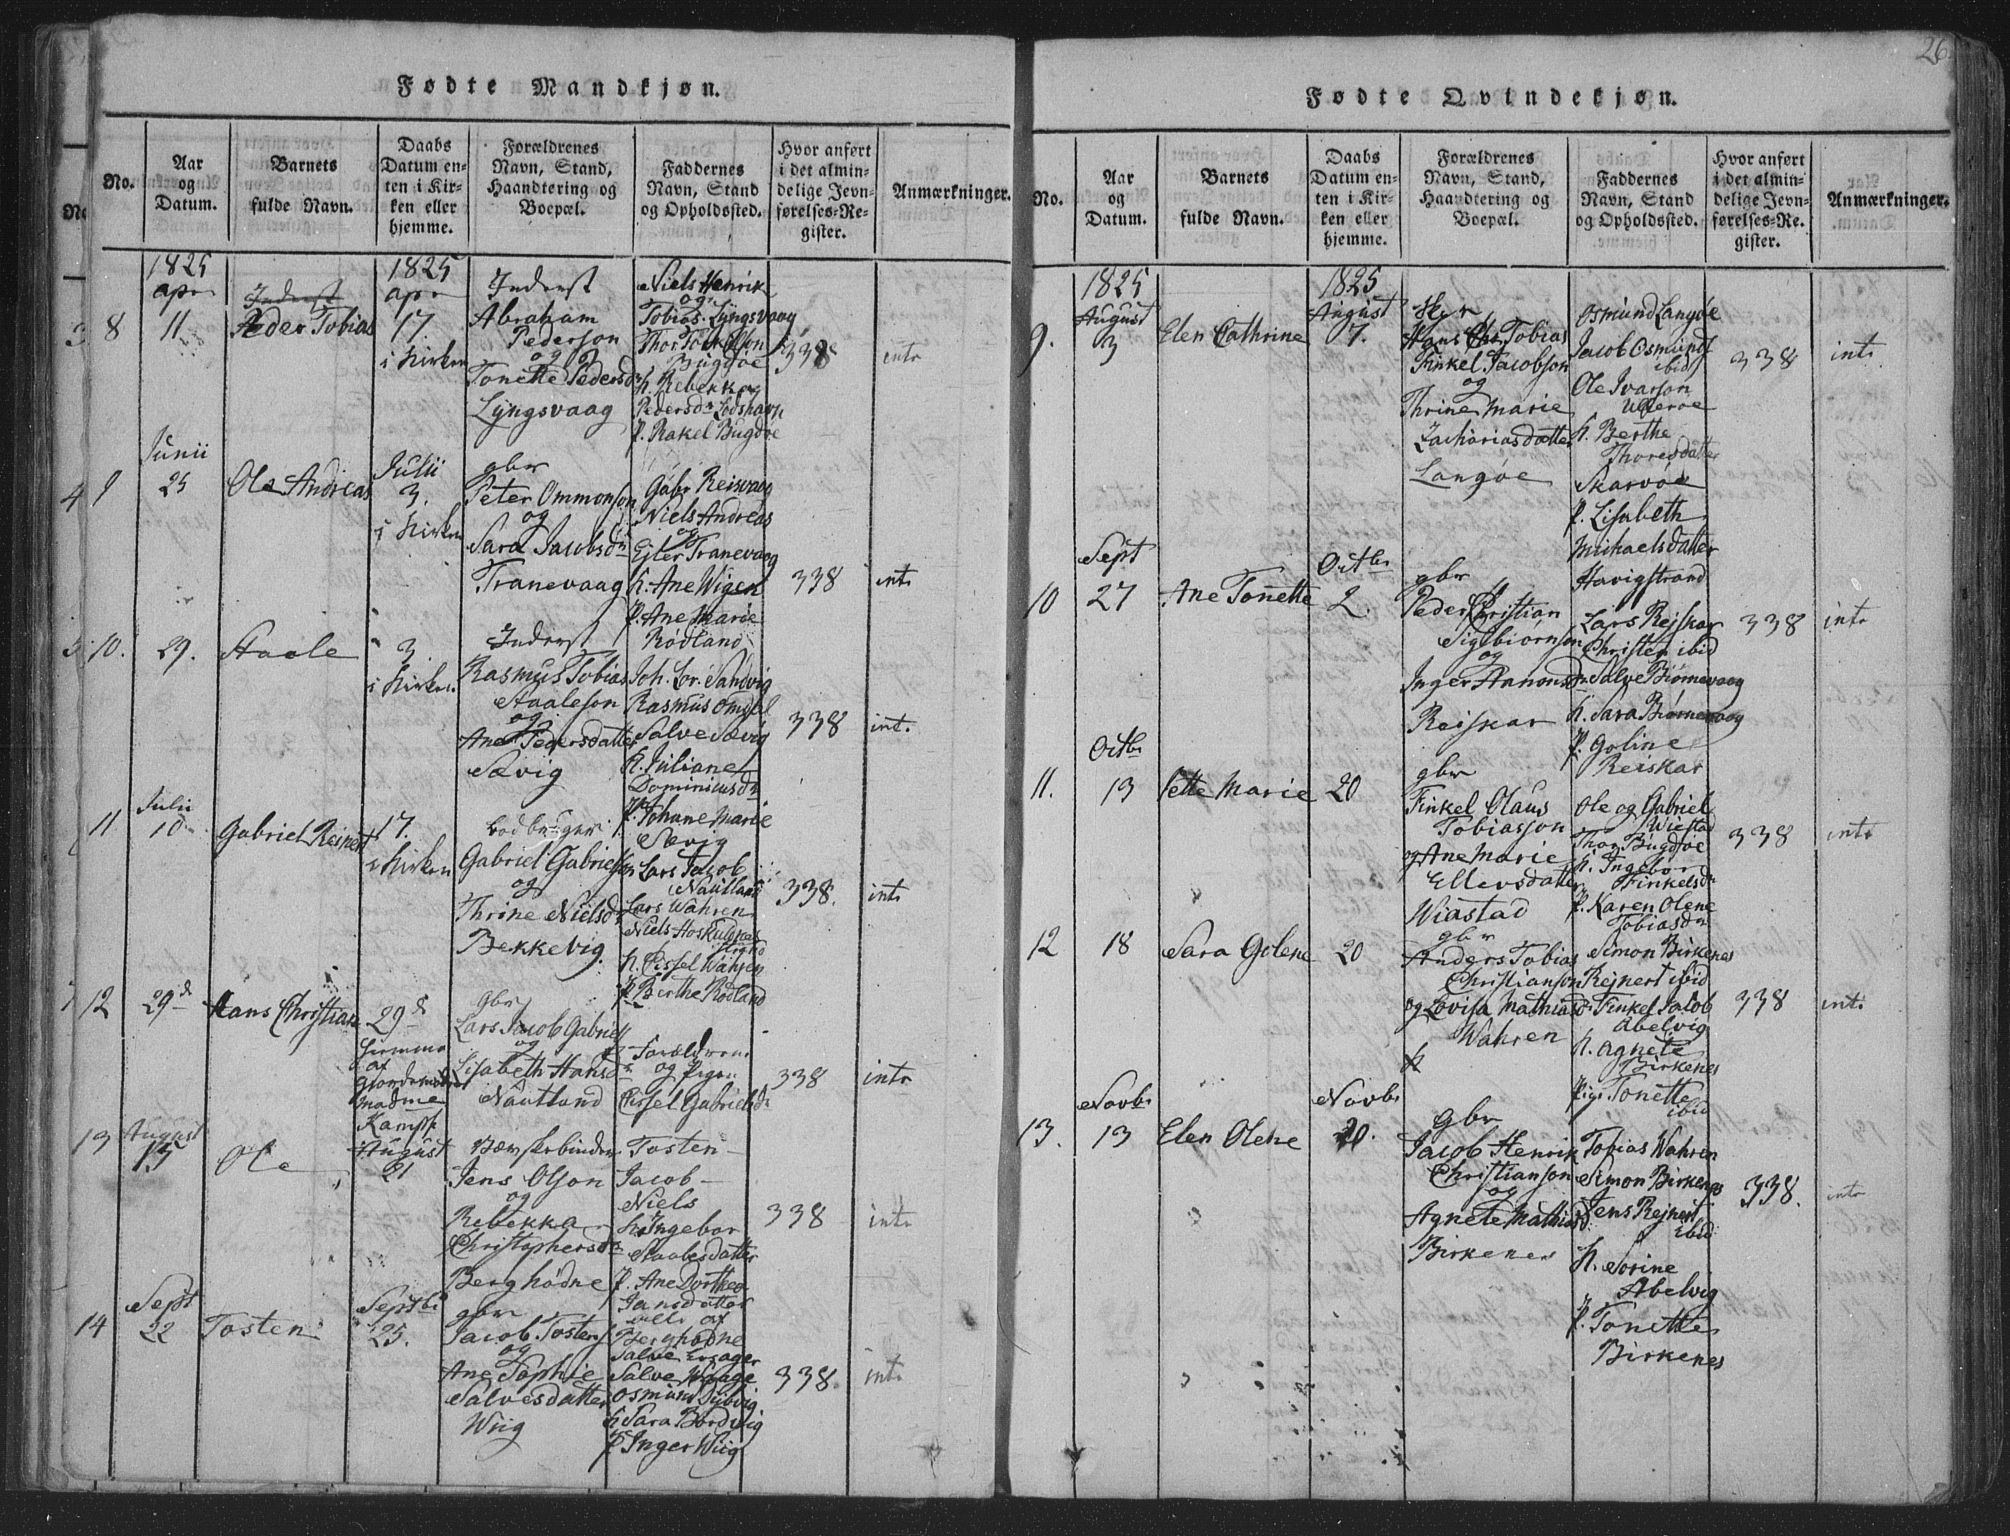 Fødte Mandkjøn.
No.
Aar og Datum.
Barnets fulde Navn.
Daabs Datum enten i Kirken eller hjemme.
Forældrenes Navn, Stand, Haandtering og Boepæl.
Faddernes Navn, Stand og Opholdssted.
Hvor anført i det almindelige Jevnførelses-Register.
Anmærkninger.
1825
apr
8
11
Peder Tobias
1825
apr
17
i Kirken
Inderst
Abraham
Pederson
og
Tonette Pedersdr
Lyngsvaag
Niels Henrik
og
Tobias Lyngsvaag
Thor Torkelson
Bugdøe
K. Rebekka
Pedersdr Lodshavn
P. Rakel Bugdøe
338
intr
Junii
9
25
Ole Andreas
Julii
3.
i Kirken
gbr
Peter Ommonson
og
Sara Jacobsdr
Tranevaag
Gabr Reisvaag
Niels Andreas
og
Ejler Tranevaag
K. Ane Wigen
P. Ane Marie
Rödland
338
intr
10.
29.
Staale
3
i Kirken
Inderst
Rasmus Tobias
Staaleson
og
Ane Pedersdatter
Sævig
Joh. Lor. Sandvig
Rasmus Omdal
Salve Sævig
K. Juliane
Dominicusdr
P. Johane Marie
Sævig
338
int.
Julii
11
10
Gabriel Reinert
17.
i Kirken
Gabriel Gabrielson
og
Thrine Nielsdr
Bekkevig
Lars Jacob
Nautland
Lars Wahren
Niels Hoskuldnes
K. Cissel Wahren
P. Berthe Rödland
338.
intr
12
29d
Hans Christian
29d
hjemme
af
Jordemoder
Madme
Kamp
gbr
Lars Jacob Gabriels
og
Lisabeth Hansdr
Nautland
Forældrene
og Pigen
Cissel Gabrielsdr
338
intr
August
13
15
Ole
August
21
Bærskebinder
Jens Olson
og
Rebekka
Christophersdr
Berghödne
Tosten
Jacob
Niels
K. Ingebor
Staalesdatter
P. Ane Dorthea
Jansdatter
alle af
Berghödne
338
intr
Sept
14
22
Tosten
Septbr
25.
gbr
Jacob Tostens
og
Ane Sophie
Salvesdatter
Wiig
Salve Waage
Osmund
K. Sara Bordvig
P. Inger Wiig
338.
intr
26
Fødte Qvindekjøn.
No.
Aar og Datum.
Barnets fulde Navn.
Daabs Datum enten i Kirken eller hjemme.
Forældrenes Navn, Stand, Haandtering og Boepæl.
Faddernes Navn, Stand og Opholdssted.
Hvor anført i det almindelige Jevnførelses-Register.
Anmærkninger.
1825
August
9.
3
Elen Cathrine
1825
August
7.
Tobias
Finkel Jacobson
og
Thrine Marie
Zachariasdatter
Langøe
Osmund Langøe
Jacob Osmunds
ibid
Ole Ivarson
Ullerøe
K. Berthe
Thoresdatter
Skarvöe
P. Lisabeth
Michaelsdatter
Havigstrand
338
intr
Sept
10
27
Ane Tonette
Octbr
2.
gbr
Peder Christian
Sigbiørnson
og
Inger Hanonsdr
Reiskar
Lars Rejskar
Christen ibid
Salve Biørnevaag
K. Sara Biørnevaag
P. Goline
Reiskar
338
intr
Octbr
11.
13
Jette Marie
20
gbr
Finkel Olaus
Tobiasson
og Ane Marie
Ellersdatter
Wiastad
Ole og Gabriel
Wiestad
Thor Bugdøe
K. Ingebor
Finkelsdr
P. Karen Olene
Tobiasdr
338
intr
12
18
Sara Golene
20
gbr
Anders Tobias
Christianson
og Lovisa Mathiasdr
Wahren
Simon Birkenes
Rejnert ibid
Finkel Jacob
Abelvig
K. Agnete
Birkenes
Pige Tonette
ibid
338
intr
Novbr
13.
13
Elen Olene
Novbr
20.
Gbr
Jacob Henrik
Christianson
og
Agnete Mathiasd
Birkenes
Tobias Wahren
Simon Birkenes
Jens Rejnert
ibid
K. Sorine
Abelvig
P. Tonette
Birkenes
338.
intr